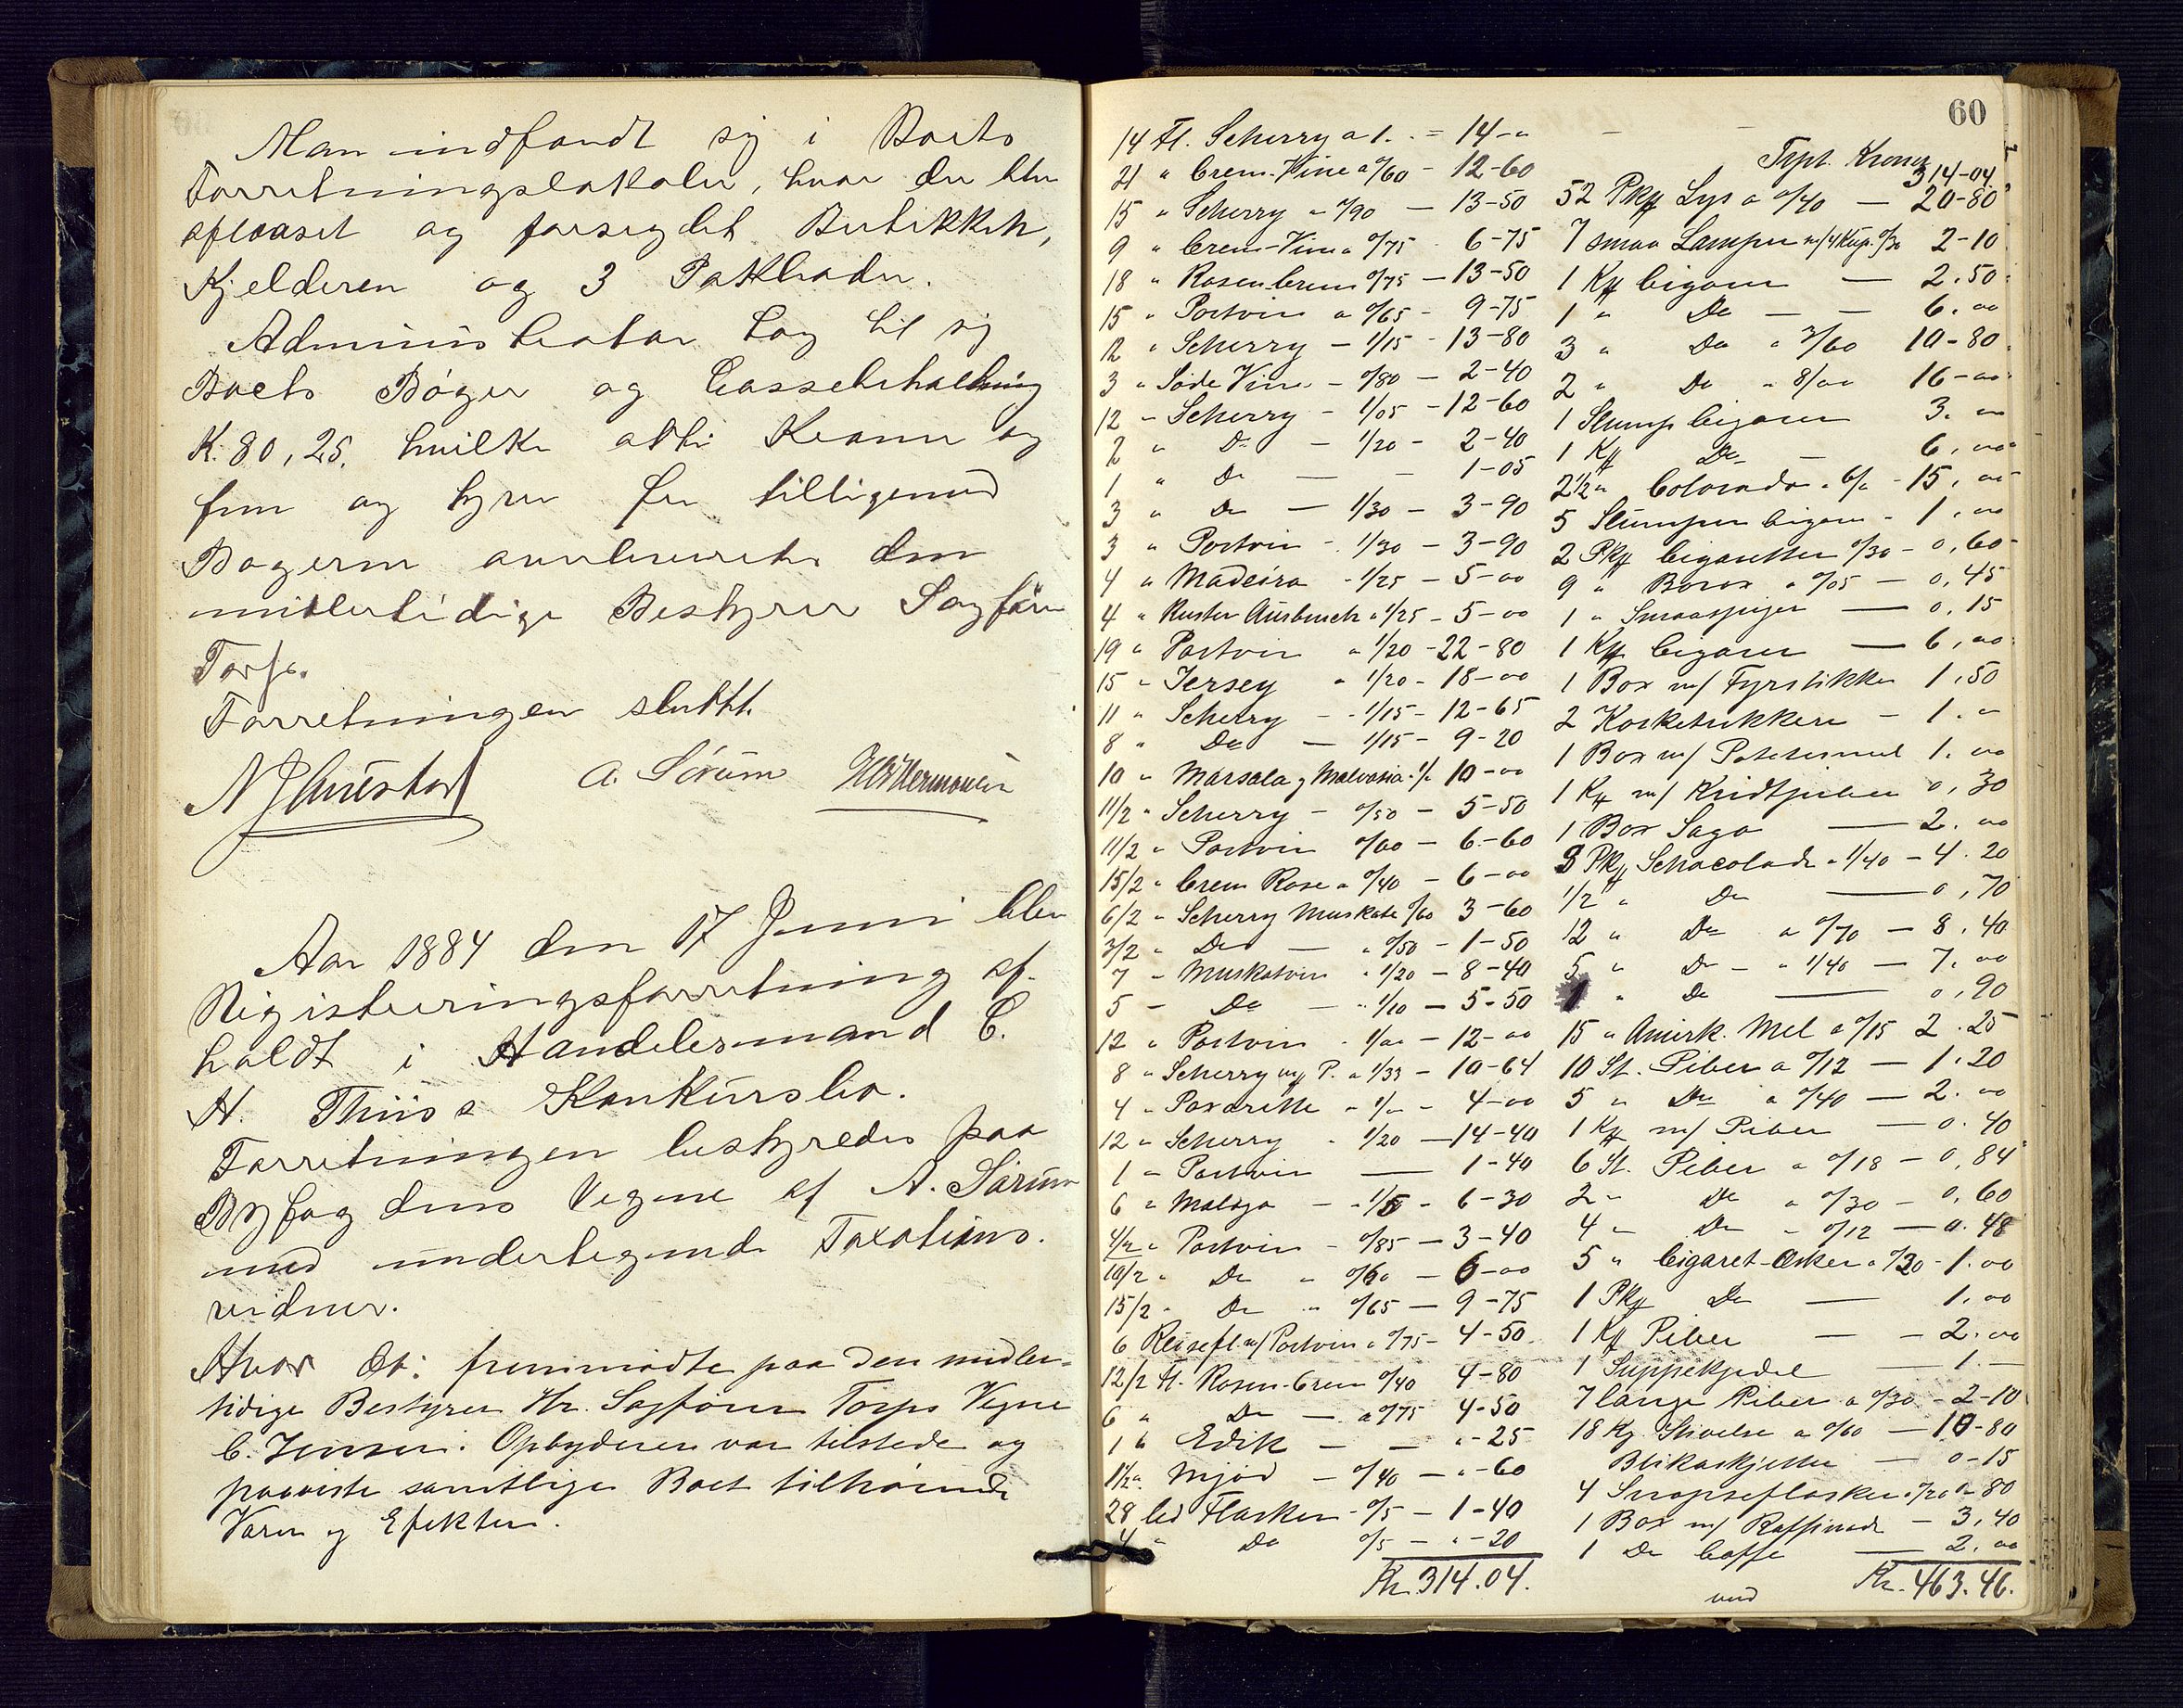 Man indfandt sig i Boets
Forretningslokaler, hvor der blev
aflaaset og forseglet Butikken,
Kjelderen og 3 Pakboder.
Administrator tog til sig
Boets Bøger og Cassebeholdning
K. 80,25, hvilke otti Kroner og
fem og tyve Øre tilligemed
Bøgerne overleveredes den
midlertidige Bestyrer Sagfører
Torp.
Forretningen sluttet.
A. Sörum
Aar 1884 den 17 Juni blev
Registreringsforretning af-
holdt i Handelsmand C.
H. Thiis's Konkursbo.
Forretningen bestyredes paa
Byfogdens Vegne af A. Sörum
med undertegnede Taxations-
vidner.
Hvor da: fremmødte paa den midler-
tidige Bestyrer Hr. Sagfører Torps Vegne
C. Jensen. Opbyderen var tilstede og
paaviste samtlige Boet tilhørende
Varer og Efekter.
60
14 Fl. Scherry a 1. = 14-"
21 " Crem-Vine a 0/60 - 12-60
15 " Scherry a 0/90 - 13-50
9 " Crem-Vin a 0/75 - 6-75
18 " Rosen Crem 0/75 - 13-50
15 " Portvin a 0/65 - 9-75
12 " Scherry - 1/15 - 13-80
3 " Søde Vine - 0/80 - 2-40
12 " Scherry - 1/05 - 12-60
2 " Do - 1/20 - 2-40
1 " Do - - 1-05
3 " Do - 1/30 - 3-90
3 " Portvin - 1/30 - 3-90
4 " Madeira - 1/25 - 5-00
4 " Ruster Ausbruch a 1/25 - 5-00
19 " Portvin a 1/20 - 22-80
15 " Jersey a 1/20 - 18-00
11 " Scherry - 1/15 - 12-65
8 " Do - 1/15 - 9-20
10 " Marsala og Malvasia 1/" 10-00
11/2 " Scherry - 0/50 - 5-50
11/2 " Portvin 0/60 - 6-60
15/2 " Crem Rose a 0/40 - 6-00
6/2 " Scherry Muskate 0/60 3-60
3/2 " Do - a 0/50 - 1-50
7 " Muskatvin a 1/20 - 8-40
5 - Do - 1/10 - 5-50
12 " Portvin - 1/00 - 12-00
8 " Scherry og P. a 1/33 - 10-64
4 " Paxarette - 1/" - 4-00
12 " Scherry - 1/20 - 14-40
1 " Portvin - 1-40
6 " Malaga - 1/5 - 6-30
4/2 " Portvin - 0/85 - 3-40
10/2 " Do " 0/60 - 6-00
15/2 " Do " 0/65 - 9-75
6 Reisefl. m/ Portvin a 0/75 - 4-50
12/2 Fl. Rosen-Crem 0/40 4-80
6 " Do - a 0/75 4-50
1 " Edik - - "-25
1 1/2 " Mjød - 0/40 - "-60
28 led Flasker - 0/5 - 1-40
4 " Do 0/5 - "-20
Kr. 314.04.
Trpt. Kroner
314-04.
52 Pk Lys a 0/40 - 20-80
7 smaa Lamper m/ 4 Kup. 0/30 2-10
1 K Cigarer - 2.50
1 " Do - - 6.00
3 " Do a 3/60 10-80
2 " Do - 8/00 16-00
1 Slump Cigarer 3.00
1 K Do - 6.00
2 1/2 " Colorado a 6/" - 15.00
5 Slumper Cigarer - 1.00
2 Pk Cigaretter 0/30 - 0,60
9 " Borax a 0/05 - 0,45
1 " Smaaspiger - 0.15
1 K Cigarer - 6,00
1 Box m/ Fyrstikker 1.50
2 Korketrekkere - 1."
1 Box m/ Potetesmel 1.00
1 K m/ Kridtpiber 0,30
1 Box Sago - 2.00
3 Pk Schocolade a 1/40 - 4.20
1/2 " Do - 0,70
12 " Do a 0/70 - 8.40
5 " Do - a 1/40 - 7.00
1 " Do - 0,90
15 " Amerk. Mel a 0/15 2.25
10 St. Piber a 0/12 - 1.20
5 " Do a 0/40 - 2.00
1 K m/ Piber - 0.40
6 St. Piber a 0/18 - 0,84
2 " Do a 0/30 - 0,60
4 " Do - 0/12 - 0.48
5 " Cigaret-Æsker a 0/20 - 1.00
1 Pk Do - 1.00
1 K Piber - - 2.00
1 Suppekjedel - 1.-
7 lange Piber a 0/30 - 2-10
18 Kg. Stivelse a 0/60 - 10-80
Blikaskjetter - 0-15
4 Snapseflasker 0/20 0-80
1 Box m/ Raffinade - 3.40
1 Do Caffe - 2.00
Kr. 463.46.